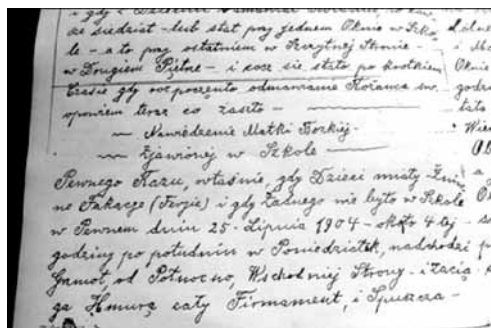 i gdy z Dziećmi
że siedział - lub stał przy jednem Oknie w Szko-
le - a to przy ostatniem w Szczytnej Stronie -
w Drugiem Piętrze - i coż się stało po krótkiem
Czasie gdy rozpoczęto odmawianie Różańca św.
opowiem teraz co zaszło -
- Nawiedzenie Matki Bozkiej -
- Zjawionej w Szkole
Pewnego Razu, właśnie, gdy Dzieci miały Żniw
ne Fakacje (Ferje) i gdy Żadnego nie było w Szkole
w Pewnem dniu 25 - Lipnia 1904 - około 4 tej -
godziny po południu w Poniedziałek, nadchodzi
Gamot, od Północno, Wschodniej Strony - i Zacią
ga Hmurą cały Firmament, i Spuszcza -